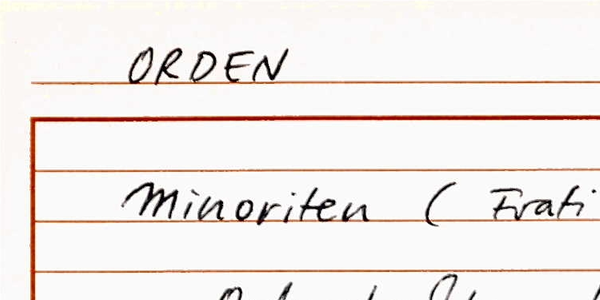 ORDEN
Minoriten ( Frati